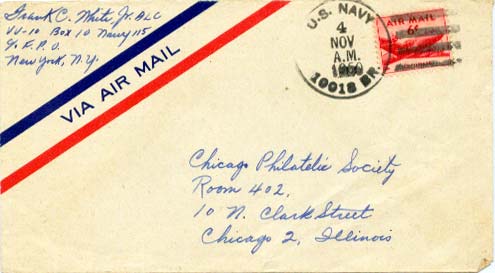 Frank C. White, Jr. ALC
VU-10 Box 10 Navy 115
℅ F.P.O.
New York, N.Y.
VIA AIR MAIL
U.S. NAVY
4
NOV
A.M.
1960
10018 BR.
AIR MAIL
6¢
Chicago Philatelic Society
Room 402,
10 N. Clark Street
Chicago 2, Illinois